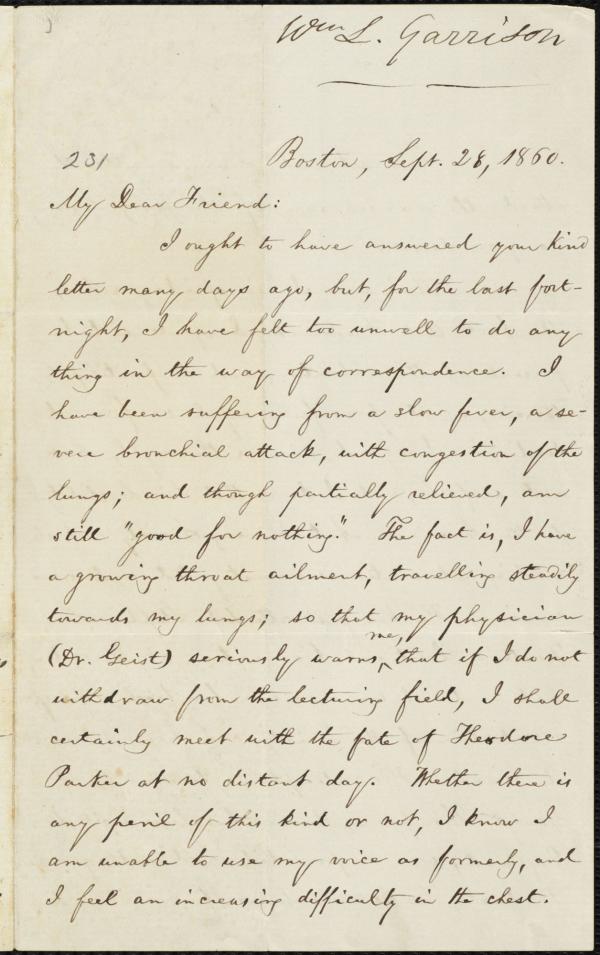 Wm L. Garrison
231
Boston, Sept. 28, 1860.
My Dear Friend:
I ought to have answered your kind
letter many days ago, but, for the last fort-
night, I have felt too unwell to do any
thing in the way of correspondence. I
have been suffering from a slow fever, a se-
vere bronchial attack, with congestion of the
lungs; and though partially relieved, am
still "good for nothing." The fact is, I have
a growing throat ailment, travelling steadily
towards my lungs; so that my physician
(Dr. Geist) seriously warns me, that if I do not
withdraw from the lecturing field, I shall
certainly meet with the fate of Theodore
Parker at no distant day. Whether there is
any peril of this kind or not, I know I
am unable to use my voice as formerly, and
I feel an increasing difficulty in the chest.